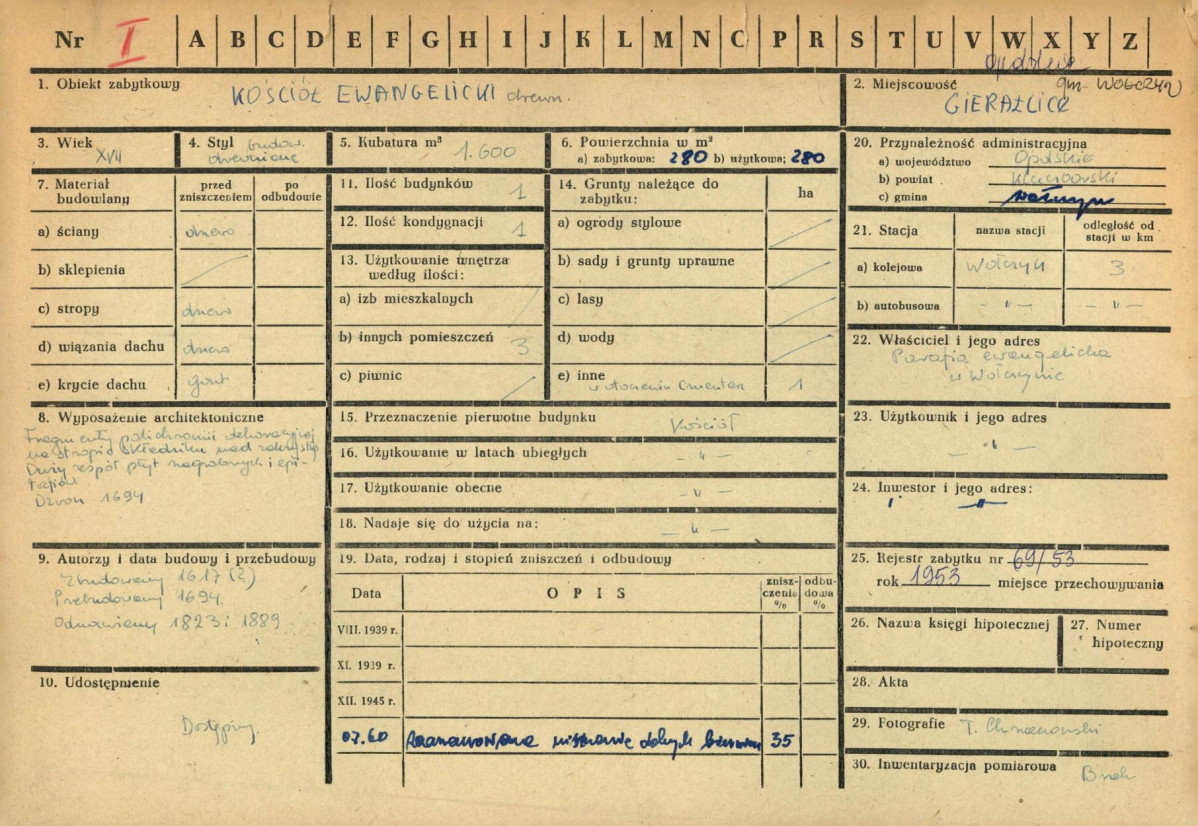 Nr I A B C D E F G H I J K L M N O P R S T U V W X Y Z
1. Obiekt zabytkowy
KOŚCIÓŁ EWANGELICKI drewn.
2. Miejscowość
opolskie
gm. WOŁCZYN
GIERAŁCICE
3. Wiek
XVII
4. Styl budow.
drewniane
5. Kubatura m³
1.600
6. Powierzchnia w m²
a) zabytkowa: 280 b) użytkowa: 280
7. Materiał budowlany
przed zniszczeniem
po odbudowie
a) ściany drewno
b) sklepienia
c) stropy drewno
d) wiązania dachu drewno
e) krycie dachu gont
8. Wyposażenie architektoniczne
Fragmenty polichromii dekoracyjnej
na stropie składziku nad zakrystią
Duży zespół płyt nagrobnych i epi-
tafiów
Dzwon 1694
9. Autorzy i data budowy i przebudowy
Zbudowany 1617 (?)
Przebudowany 1694.
Odnawiany 1823 i 1889
10. Udostępnienie
Dostępny.
11. Ilość budynków 1
12. Ilość kondygnacji 1
13. Użytkowanie wnętrza
według ilości:
a) izb mieszkalnych
b) innych pomieszczeń 3
c) piwnic
14. Grunty należące do
zabytku:
ha
a) ogrody stylowe
b) sady i grunty uprawne
c) lasy
d) wody
e) inne
w otoczeniu cmentarz 1
15. Przeznaczenie pierwotne budynku
Kościół
16. Użytkowanie w latach ubiegłych
- " -
17. Użytkowanie obecne
- " -
18. Nadaje się do użycia na:
- " -
19. Data, rodzaj i stopień zniszczeń i odbudowy
Data
O P I S
znisz-
czenia
%
odbu-
dowa
%
VIII. 1939 r.
XI. 1939 r.
XII. 1945 r.
07.60 dolnych 35
20. Przynależność administracyjna
a) województwo Opolskie
b) powiat Kluczborski
c) gmina Wołczyn
21. Stacja
nazwa stacji
odległość od
stacji w km
a) kolejowa Wołczyn 3
b) autobusowa - " - - " -
22. Właściciel i jego adres
Parafia ewangelicka
w Wołczynie
23. Użytkownik i jego adres
- " -
24. Inwestor i jego adres:
" - " -
25. Rejestr zabytku nr 69/53
rok 1953 miejsce przechowywania
26. Nazwa księgi hipotecznej
27. Numer
hipoteczny
28. Akta
29. Fotografie T. Chrzanowski
30. Inwentaryzacja pomiarowa
Brak